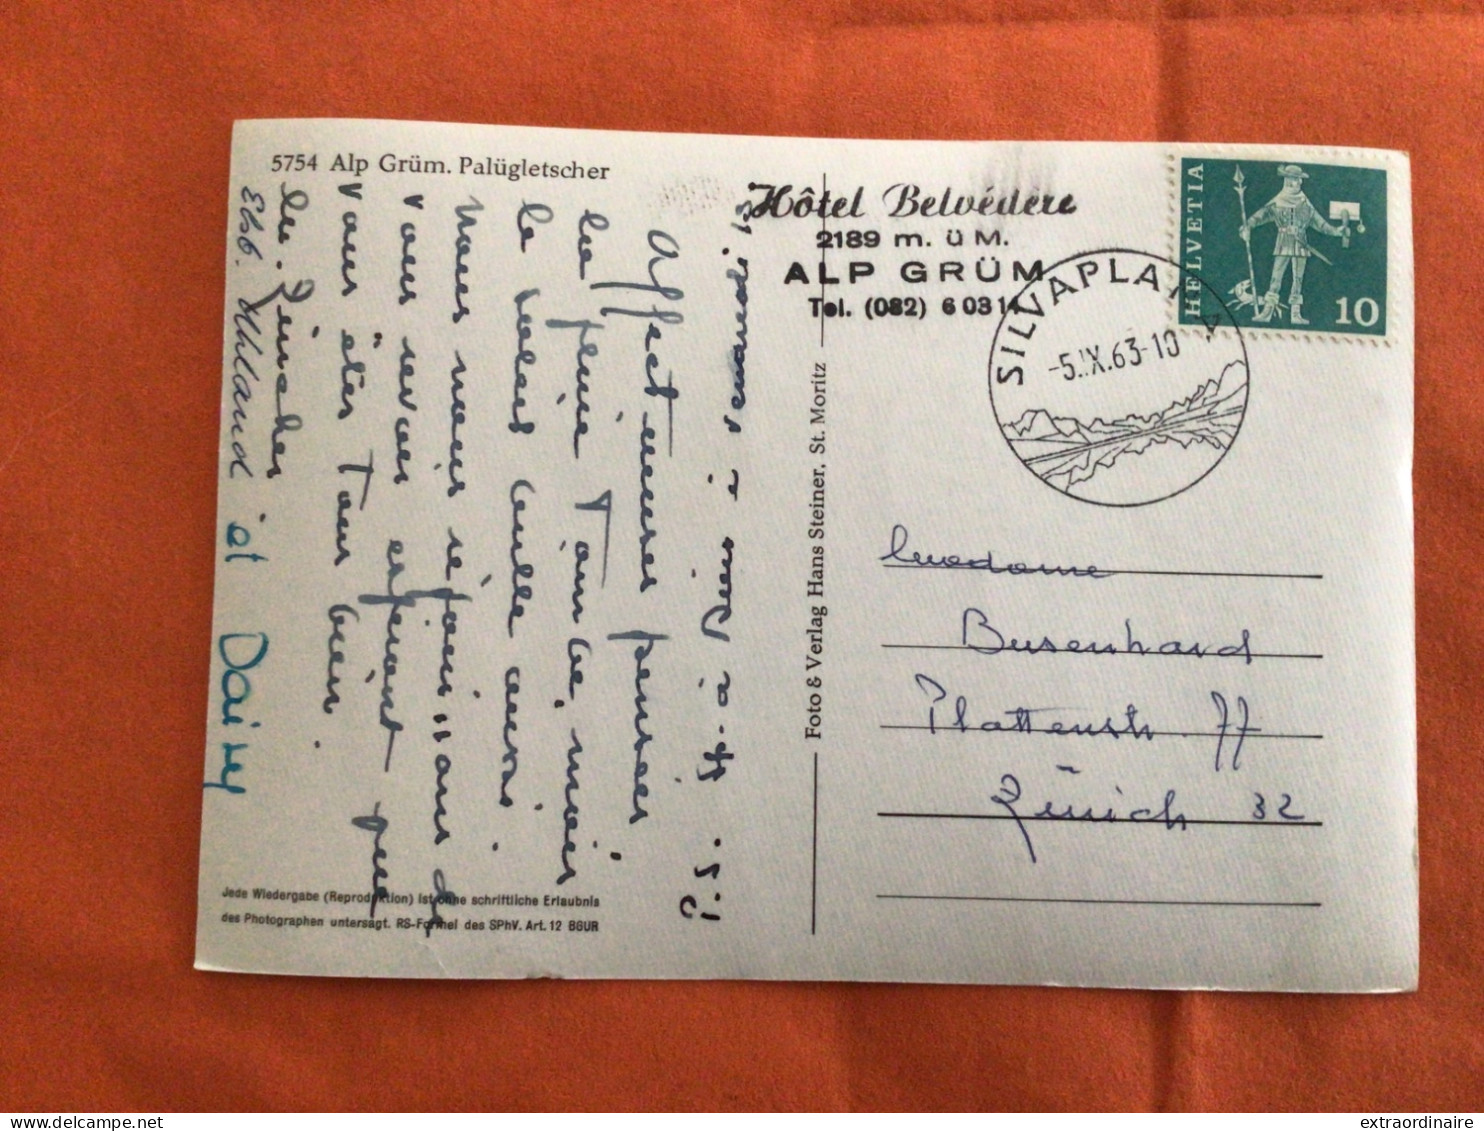 5754 Alp Grüm. Palügletscher
Hôtel Belvédère
2189 m. ü M.
ALP GRÜM
Tel. (082) 6 03 14
HELVETIA
10
SILVAPLANA
-5.IX.63-10
Madame
Busenhard
Plattenstr. 77
Zürich 32
Affectueuses pensées
la pluie tombe, mais
le soleil brille aussi.
Nous nous réjouissons de
vous revoir espérant que
vous êtes tous bien.
et Daisy
Foto & Verlag Hans Steiner, St. Moritz
Jede Wiedergabe (Reproduktion) ist ohne schriftliche Erlaubnis
des Photographen untersagt. RS-Formel des SPhV. Art. 12 BGUR
extraordinaire